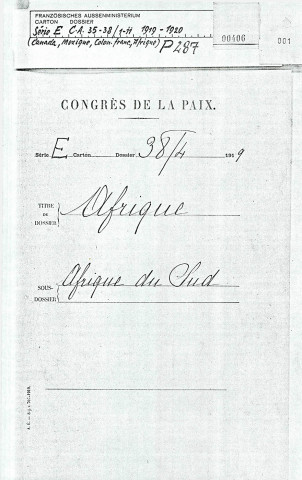 FRANZÖSISCHES AUSSENMINISTERIUM
CARTON DOSSIER
Série E C.A. 35-38/1-11 1919-1920
(Canada, Mexique, Colon. franç., Afrique) P 287
00406 001
CONGRÈS DE LA PAIX.
Série E Carton Dossier 38/4 1919
TITRE DE DOSSIER Afrique
SOUS-DOSSIER Afrique du Sud